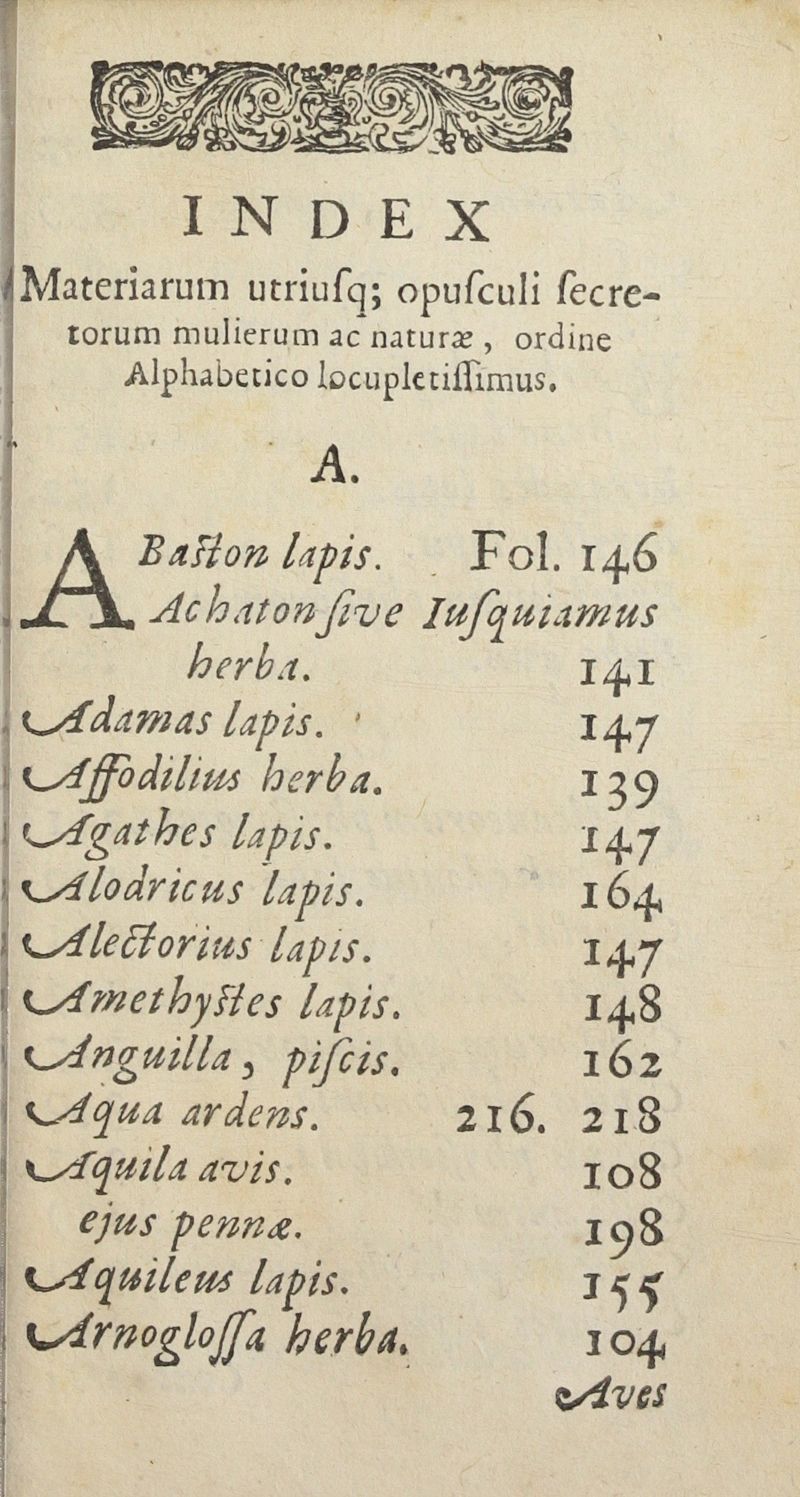 INDEX
Materiarum utriuſq; opuſculi ſecre-
torum mulierum ac naturæ, ordine
Alphabetico locupletiſſimus.
A.
ABaſton lapis. Fol. 146
Achaton ſive Iuſquiamus
herba. 141
Adamas lapis. 147
Affodilius herba. 139
Agathes lapis. 147
Alodricus lapis. 164
Alectorius lapis. 147
Amethyſtes lapis. 148
Anguilla, piſcis. 162
Aqua ardens. 216. 218
Aquila avis. 108
ejus pennæ. 198
Aquileus lapis. 155
Arnogloſſa herba. 104
Aves